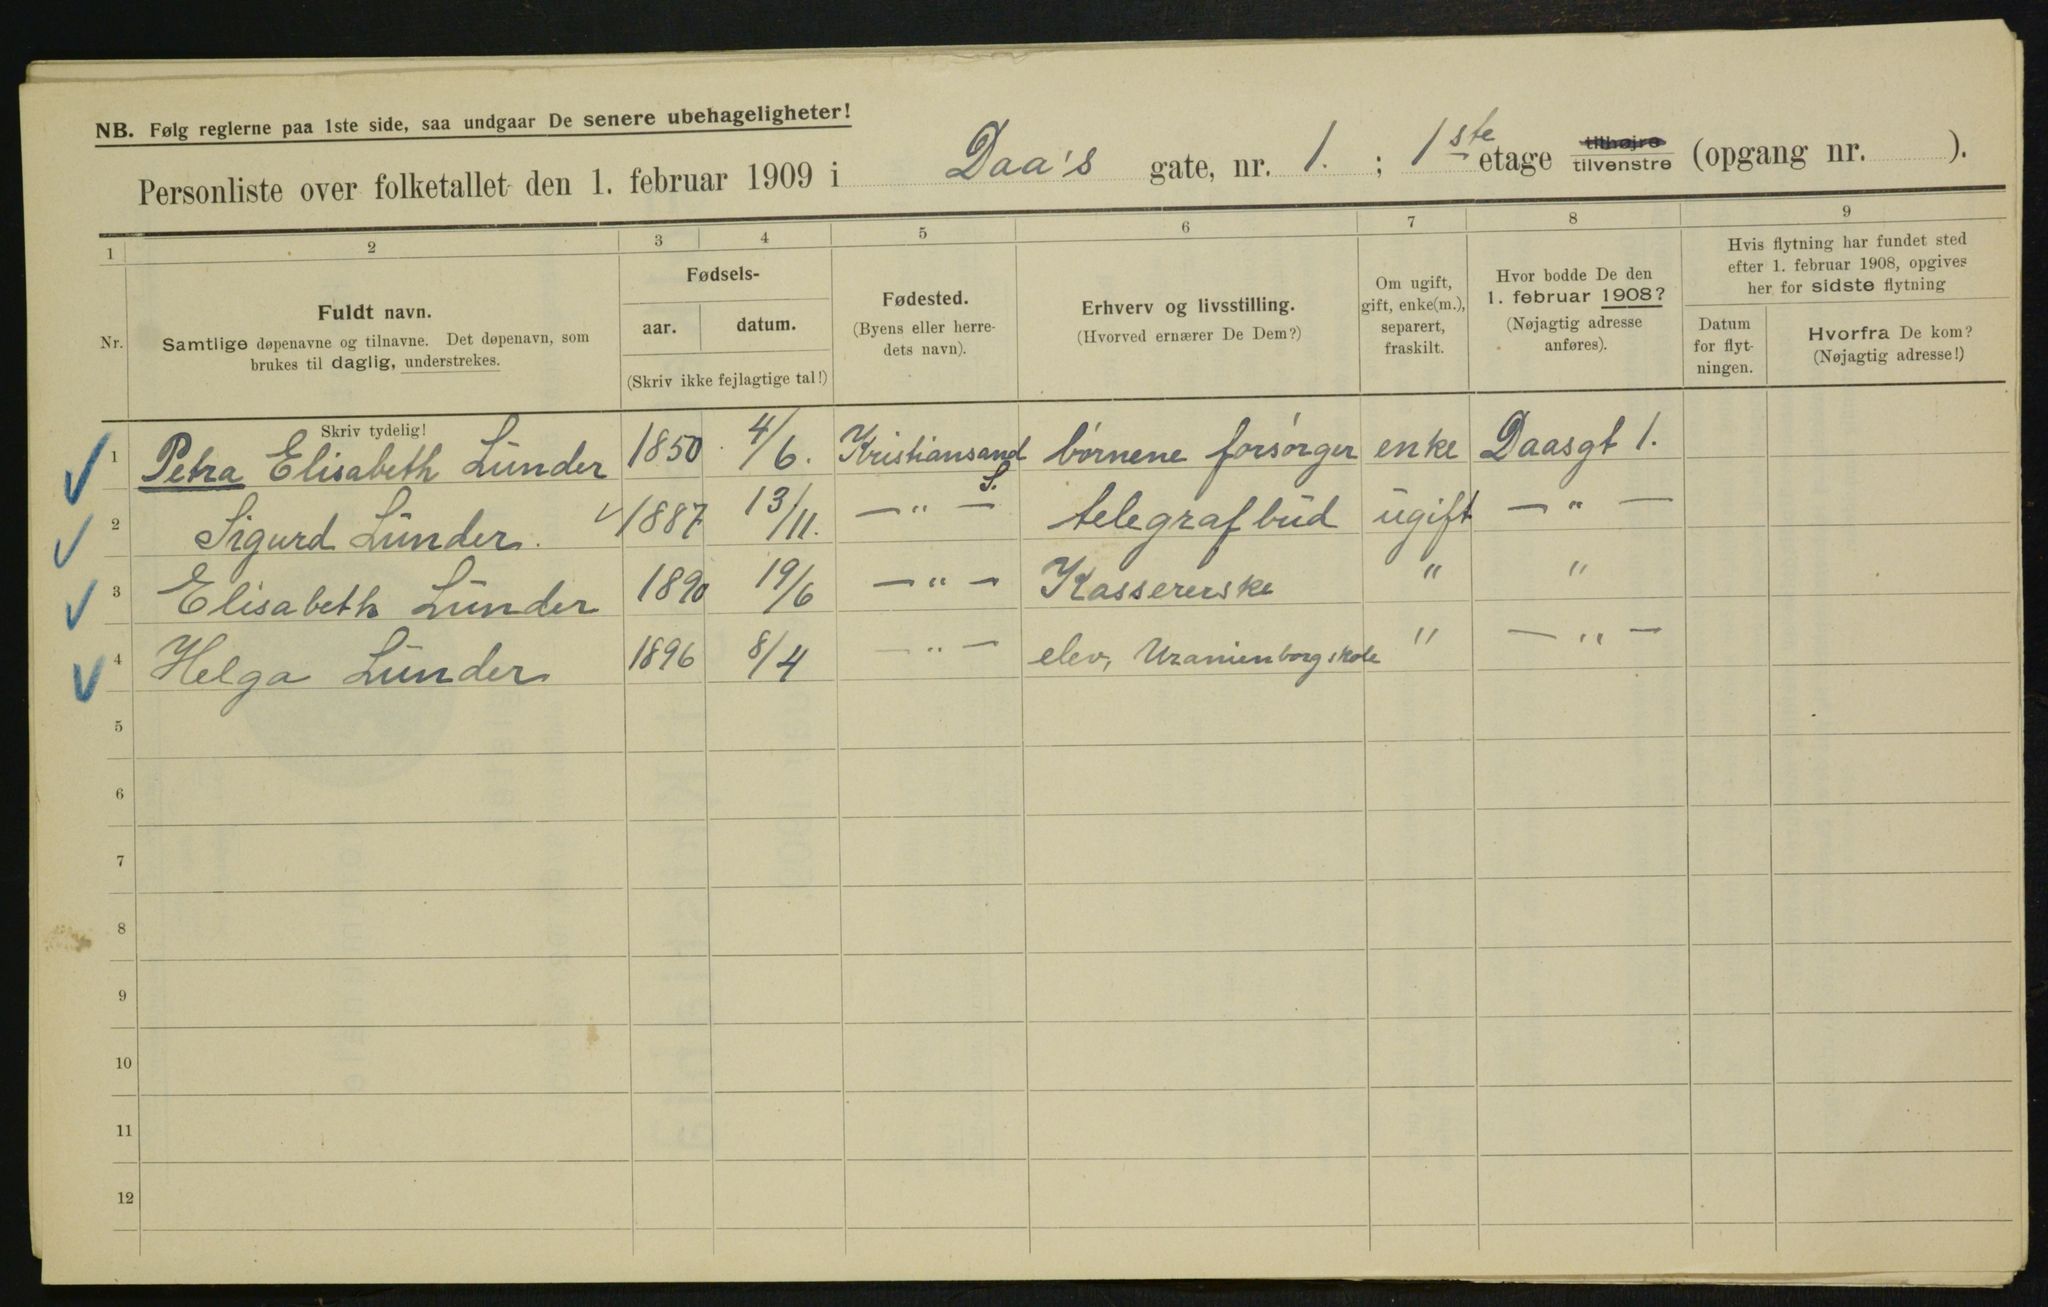 NB. Følg reglerne paa 1ste side, saa undgaar De senere ubehageligheter!
Personliste over folketallet den 1. februar 1909 i Daa's gate, nr. 1. ; 1ste etage tilhøjre tilvenstre (opgang nr. ).
1 2 3 4 5 6 7 8 9
Nr.
Fuldt navn.
Samtlige døpenavne og tilnavne. Det døpenavn, som
brukes til daglig, understrekes.
Fødsels-
aar. datum.
(Skriv ikke fejlagtige tal!)
Fødested.
(Byens eller herre-
dets navn).
Erhverv og livsstilling.
(Hvorved ernærer De Dem?)
Om ugift,
gift, enke(m.),
separert,
fraskilt.
Hvor bodde De den
1. februar 1908?
(Nøjagtig adresse
anføres).
Hvis flytning har fundet sted
efter 1. februar 1908, opgives
her for sidste flytning
Datum
for flyt-
ningen.
Hvorfra De kom?
(Nøjagtig adresse!)
Skriv tydelig!
1 Petra Elisabeth Lunder 1850 4/6. Kristiansand S. børnene forsørger enke Daasgt 1.
2 Sigurd Lunder. 1887 13/11. — " — telegrafbud ugift — " —
3 Elisabeth Lunder 1890 19/6 — " — Kassererske " "
4 Helga Lunder 1896 8/4 — " — elev, Uranienborg skole " — " —
5
6
7
8
9
10
11
12